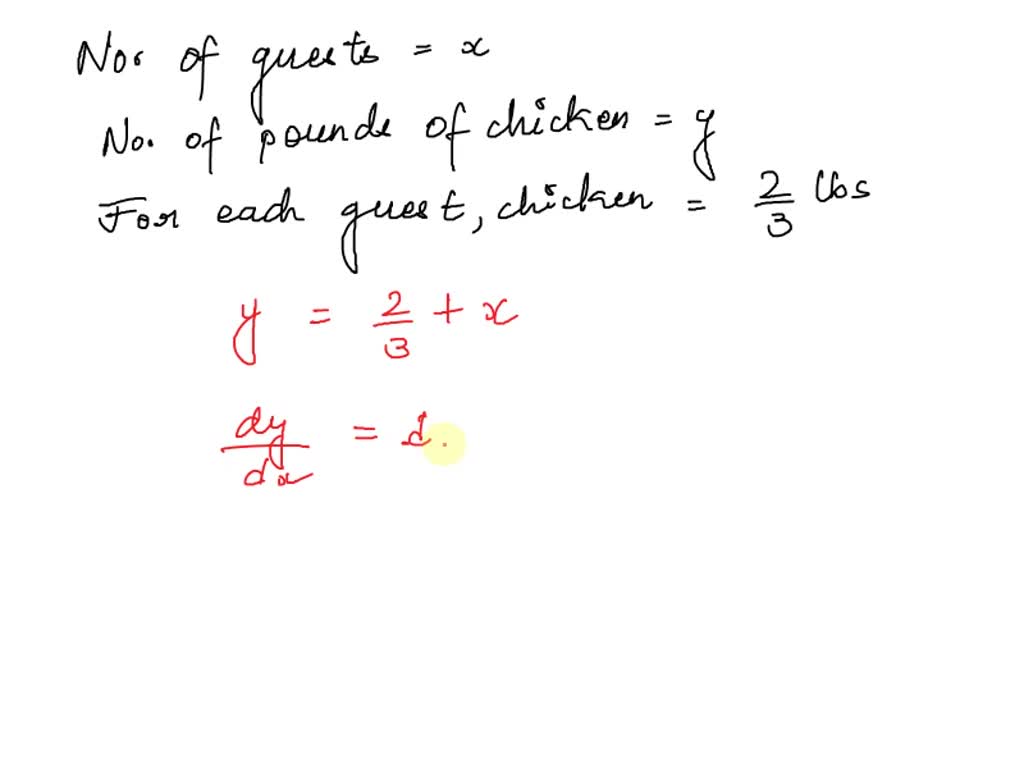 No. of guests = x
No. of pounds of chicken = y
For each guest, chicken = 2/3 lbs
y = 2/3 + x
dy/dx = d